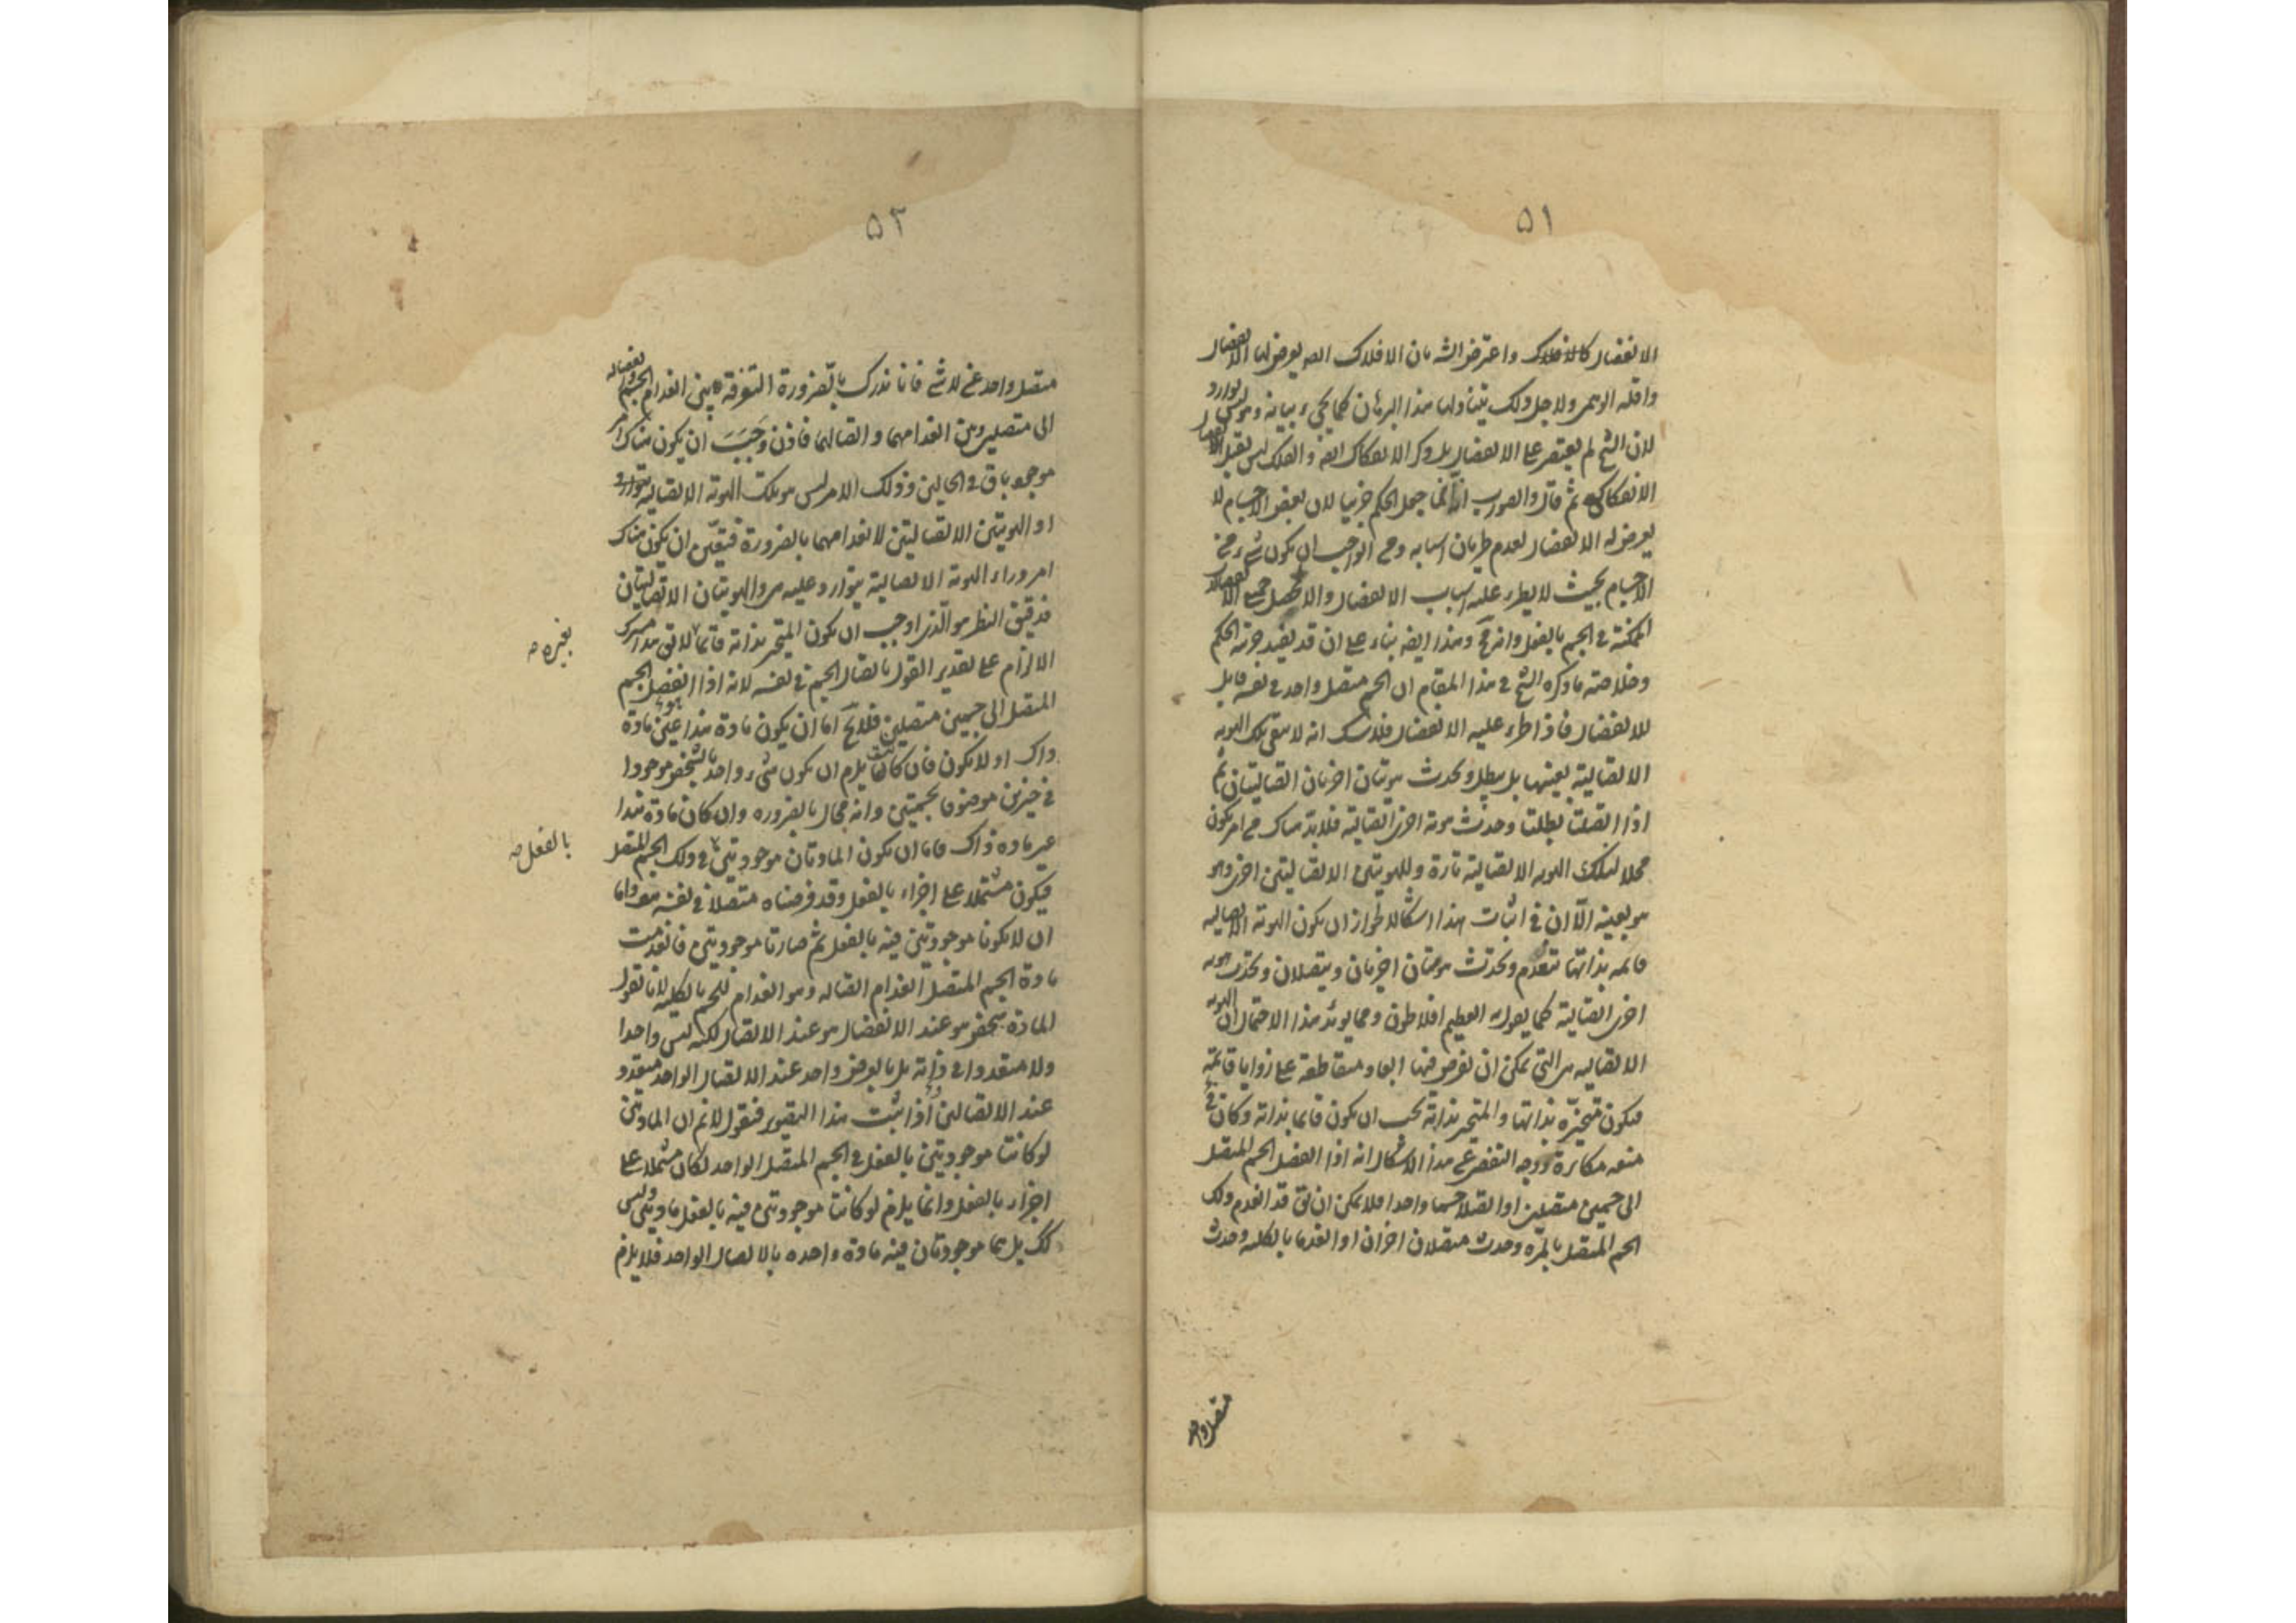 ٥١
الانفصال كالافلاك واعترض الشه بان الافلاك ايضا يعرض لها الانفصال
واقله الوهمى ولاجل ذلك يتناولها هذا البرهان كما يجىء بيانه وهو ليس بوارد
لان الشيخ لم يقتصر على الانفصال بل ذكر الانفكاك ايضه والفلك ليس يقبل الانفصال
الانفكاكى ثم قال والصورب انه انما جعل الحكم جزئيا لان بعض الاجسام لا
يعرض له الانفصال لعدم طريان اسبابه ومن الواجب ان يكون شىء من
الاجسام بحيث لا يطرء عليه اسباب الانفصال والا لحصل جميع الانفصالات
الممكنة فى الجسم بالفعل وانه مح وهذا ايضه بناء على ان قد يفيد جزئية الحكم
وخلاصة ما ذكره الشيخ فى هذا المقام ان الجسم متصل واحد فى نفسه قابل
للانفصال فاذا طرء عليه الانفصال فلا شك انه لا يبقى تلك الهوية
الاتصالية بعينها بل يبطل ويحدث هويتان اخريان اتصاليتان ثم
اذا اتصلتا بطلتا وحدث هوية اخرى اتصالية فلابد هناك من امر يكون
محلا لتلك الهوية الاتصالية تارة وللهويتين الاتصاليتين اخرى وهو
هو بعينه الا ان فى اثبات هذا اشكالا لجواز ان يكون الهوية الاتصالية
قائمه بذاتها تنعدم وتحدث هويتان اخريان ويتصلان وتحدث هوية
اخرى اتصالية كما يقول به العظيم افلاطون ومما يؤيد هذا الاحتمال ان الهوية
الاتصالية هى التى يمكن ان نفرض فيها ابعاد متقاطعة على زوايا قائمة
فيكون متحيزة بذاتها والمتحيز بذاته يجب ان يكون قائما بذاته وكان فى
منعه مكابرة ووجه التفصى عن هذا الاشكال انه اذا انفصل الجسم المتصل
الى جسمين متصلين او اتصلا جسما واحدا فلا يمكن ان يق قد انعدم ذلك
الجسم المتصل بالمرة وحدث متصلان اخران او انعدما بالكلية وحدث
متصل واحد
٥٢
متصل واحد عن لا شىء فانا ندرك بالضرورة التفرقة بين انعدام الجسم وانفصاله
الى متصلين وبين انعدامهما واتصالهما فاذن وجب ان يكون هناك امر
موجود باق فى الحالين وذلك الامر ليس هو تلك الهوية الاتصالية
او الهويتين الاتصاليتين لانعدامهما بالضرورة فتعين ان يكون هناك
امر وراء الهوية الاتصالية يتوارد عليه هى والهويتان الاتصاليتان
فدقيق النظر هو الذى اوجب ان يكون المتحيز بذاته قائما لا يق هذا مشترك
بغيره صح
الالزام على تقدير القول باتصال الجسم فى نفسه لانه اذا انفصل الجسم
المتصل الى جسمين متصلين فلا يخ اما ان يكون مادة هذا عين مادة
ذاك او لا يكون فان كانت يلزم ان يكون شىء واحد بالشخص موجودا
فى حيزين موصوفا بجسميتين وانه محال بالضرورة وان كان مادة هذا
غير مادة ذاك فاما ان يكون المادتان موجودتين فى ذلك الجسم المتصل
بالفعل صح
فيكون مشتملا على اجزاء بالفعل وقد فرضناه متصلا فى نفسه هف واما
ان لا يكونا موجودتين فيه بالفعل ثم صارتا موجودتين فانعدمت
مادة الجسم المتصل انعدام اتصاله وهو انعدام للجسم بالكلية لانا نقول
المادة شخص هو عند الانفصال هو عند الاتصال لكنه ليس واحدا
ولا متعددا فى ذاته بل بالعرض واحد عند الاتصال الواحد متعدد
عند الاتصالين اذا ثبت هذا التصوير فنقول لانم ان المادتين
لو كانتا موجودتين بالفعل فى الجسم المتصل الواحد لكان مشتملا على
اجزاء بالفعل وانما يلزم لو كانتا موجودتين فيه بالفعل مادتين وليس
كك بل هما موجودتان فيه مادة واحدة بالاتصال الواحد فلا يلزم